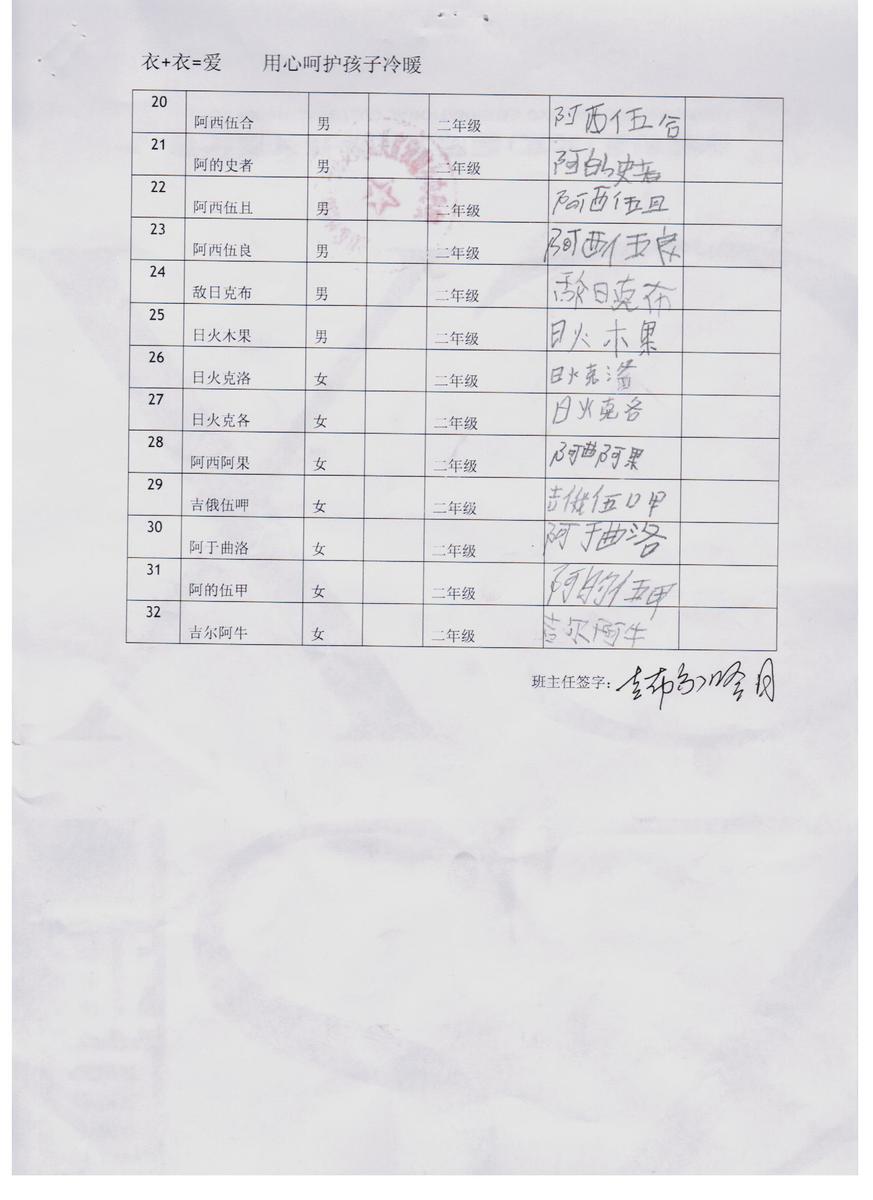 衣+衣=爱 用心呵护孩子冷暖
20 阿西伍合 男 二年级 阿西伍合
21 阿的史者 男 二年级 阿的史者
22 阿西伍且 男 二年级 阿西伍且
23 阿西伍良 男 二年级 阿西伍良
24 敌日克布 男 二年级 日克布
25 日火木果 男 二年级 日火木果
26 日火克洛 女 二年级 日火克洛
27 日火克各 女 二年级 日火克各
28 阿西阿果 女 二年级 阿西阿果
29 吉俄伍呷 女 二年级 吉俄伍呷
30 阿于曲洛 女 二年级 阿于曲洛
31 阿的伍甲 女 二年级 阿的伍甲
32 吉尔阿牛 女 二年级 吉尔阿牛
班主任签字：